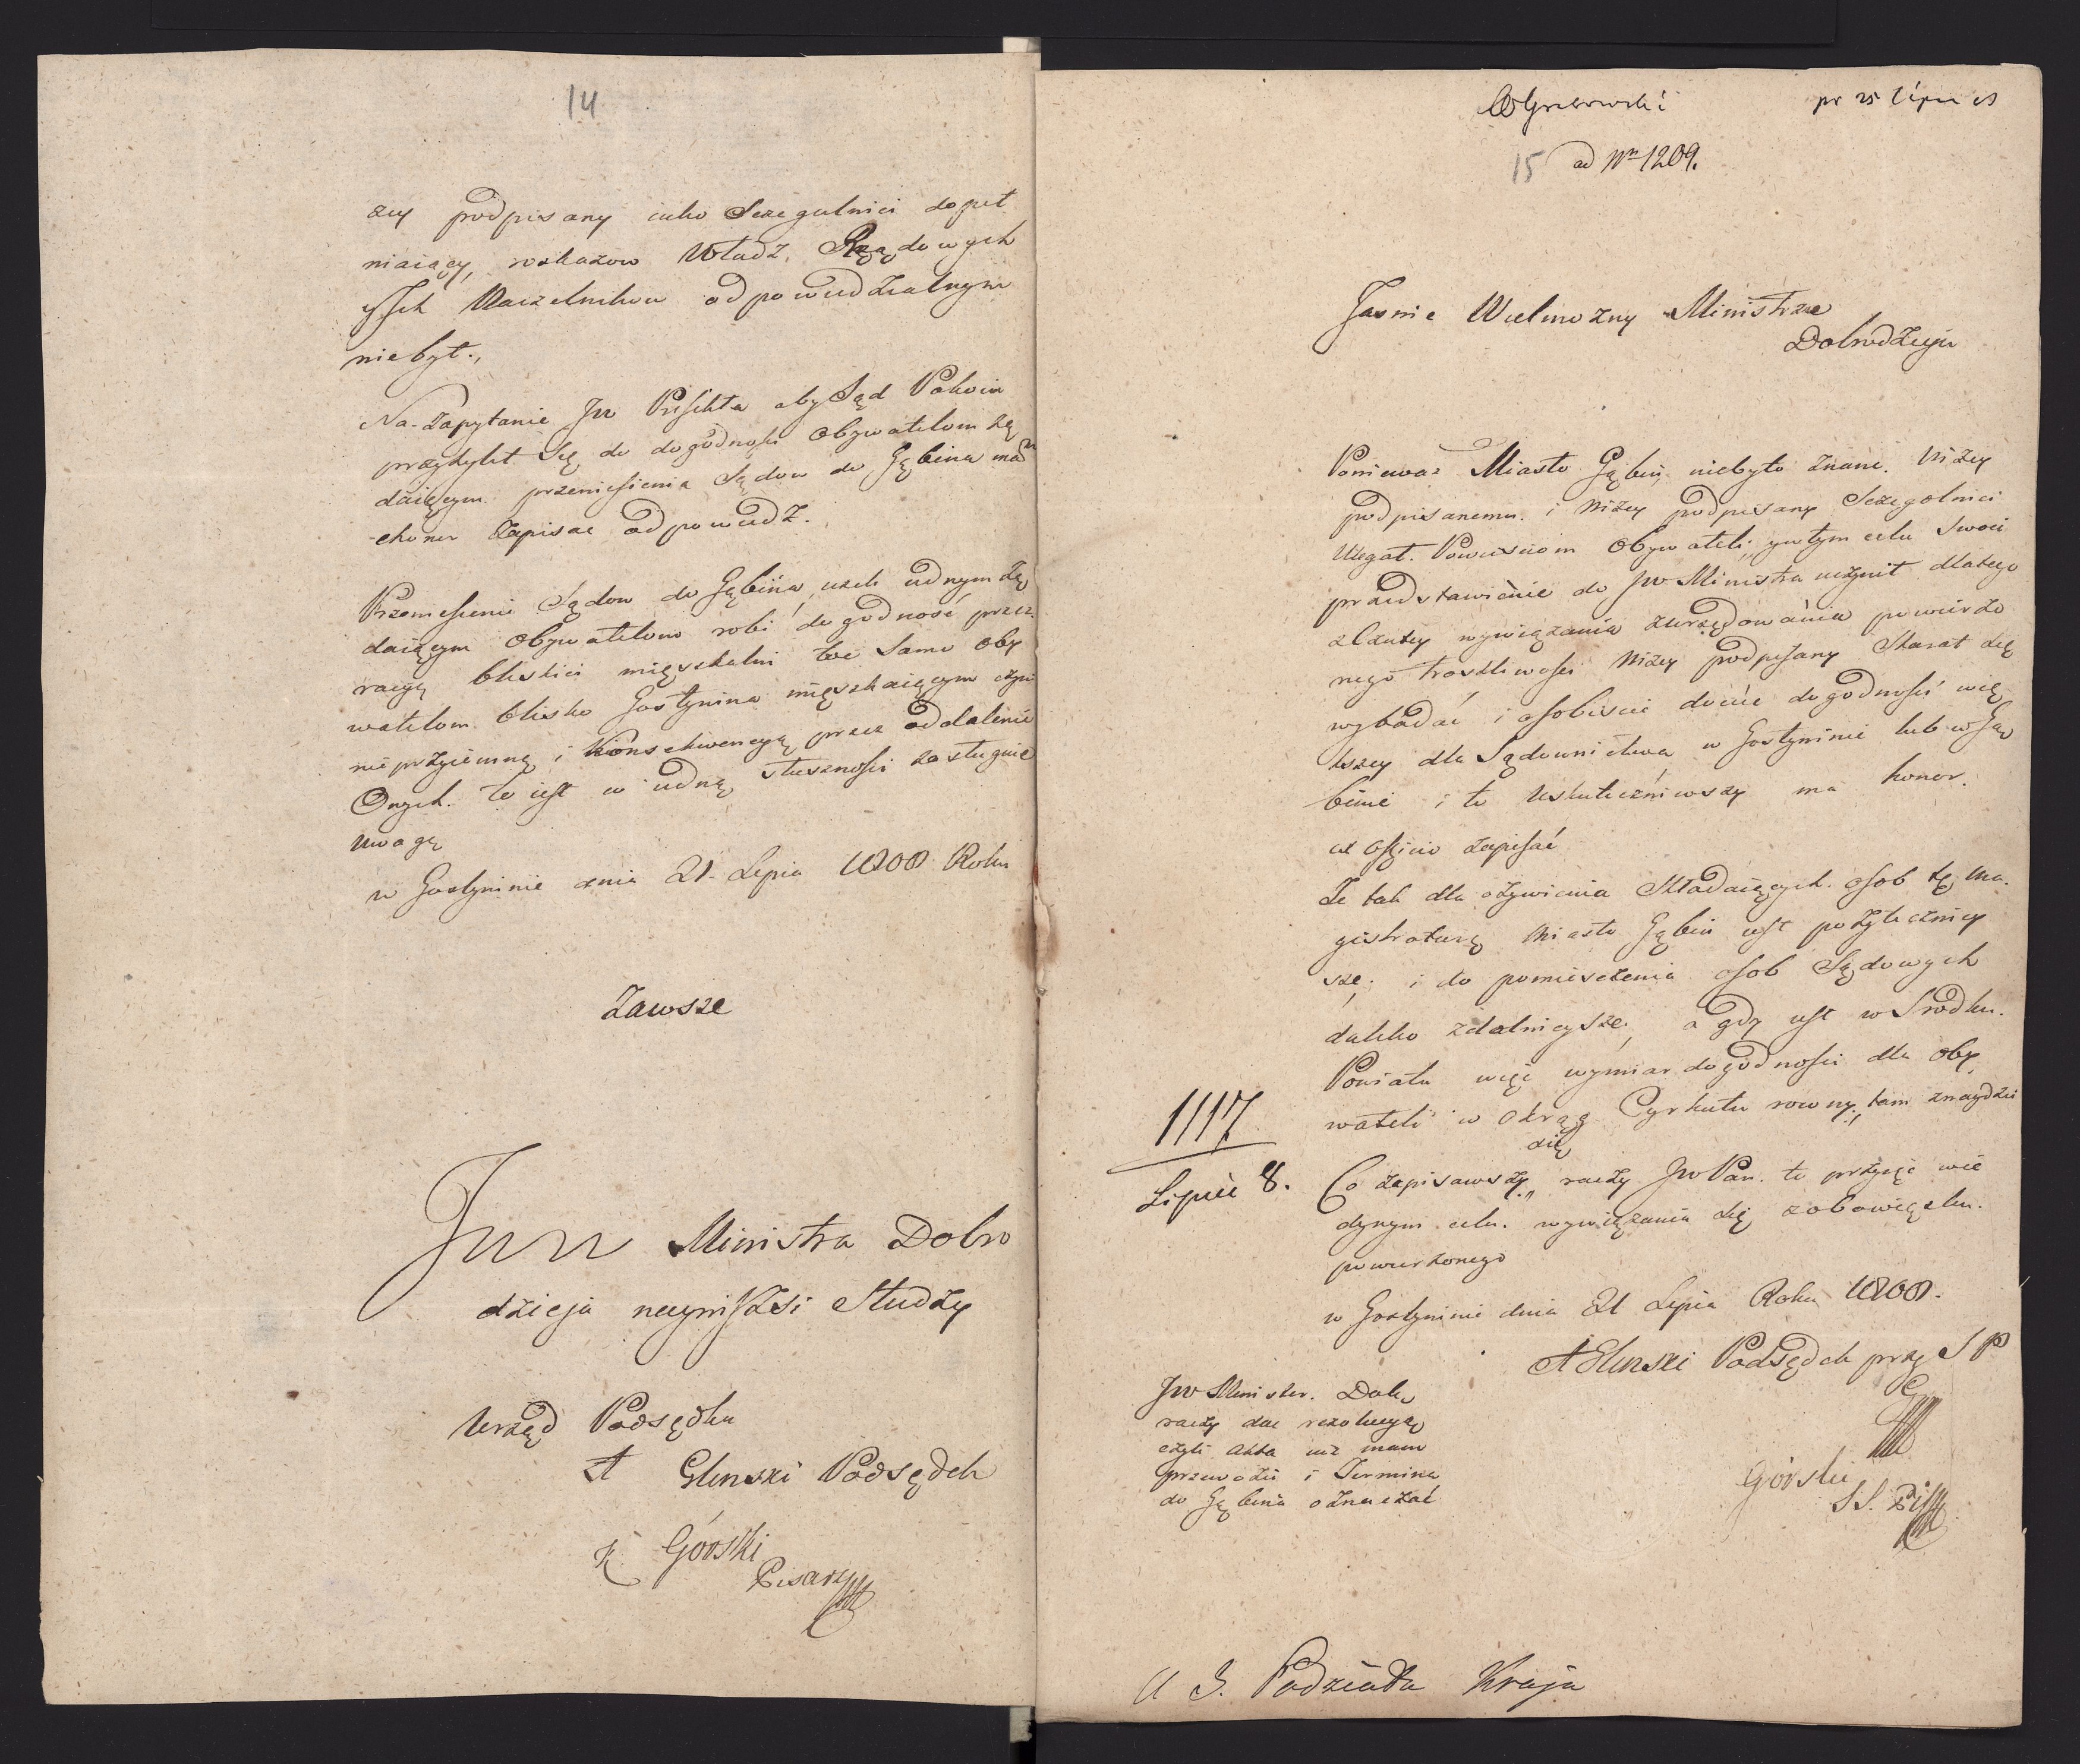 14
zey podpisany iako Szczegulnici dopeł
niaiący, wskazow Władz, Rządowych
yIch Naczelnikow odpowiedzialnym
niebył.,
Na Zapytanie JW Prefekta aby Sąd Pokoiu
przychylił Się do dogodnosci Obywatelom żą
daiącym przeniesienia Sądow do Gąbina ma
honor Zapisac odpowiedz.
Przeniesienie Sądow do Gąbina, iednym żą
daiącym Obywatelom robi dogodność przez
racyą bliskiei mięszkalni toż Samo oby
watelom blisko Gostynina mięszkaiącym czyni
nieprzyiemną i Konsekwencyą przez oddalenie
Onych. to iest w iedną słusznosci zasługuie
uwagę
w Gostyninie dnia 21. Lipca 1808 Roku
Zawsze
JWW Ministra Dobro
dzieja nayniższi Słudzy
Urząd Podsędka
A Glinski Podsędek
K. Górski
Pisarz
pr 25 Lipca
15 ad Nrm 1209.
Jasnie Wielmożny Ministrze
Dobrodzieju
Ponieważ Miasto Gąbin niebyło Znane. Niżey
podpisanemu. i Niżey podpisany Szczegolnici
Uległ. Powieściom Obywateli, ywtym celu Swoei
przedstawienie do JW Ministra uczynił dlatego
z Czułey wywiązania zurzędowania powierzo
nego troskliwosci Niżey podpisany Starał się
wybadać i osobiscie docieć dogodności wię
kszey dla Sądownictwa w Gostyninie lub w Gą
binie i to Uskuteczniwszy ma honor.
zapisać
Ze tak dla ożywienia Składaiących osob tę Ma.
gistraturę Miasto Gąbin iest pożytecznięy
sze, i do pomieszczenia osob Sądowych
daleko zdatnieysze, a gdy iest w Srodku.
Powiatu więc wymiar dogodnosci dla oby
wateli w okrąg Cyrkułu rowny, tam znaydzie
się
1117
Lipiec 8.
Co Zapisawszy, raczy JW Pan. to przyiąć wie
dynym celu. wywiązania się zobowiązku.
powierzonego
w Gostyninie dnia 21 Lipca Roku 1808.
A Glinski Podsędek przy S P
JW Minister. Dob.
raczy dac rezolucyą
czyli akta iuż mam
przewozić i Termina
do Gąbina oznaczać
Górski
SS. Pis
U S. Podziału Kraju